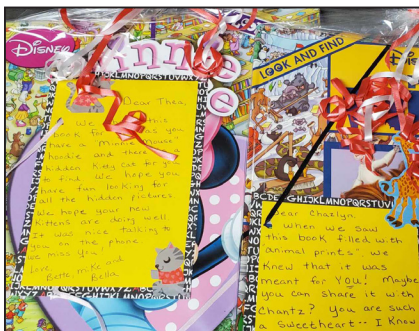 Disney
innie
LOOK AND FIND
Dear Thea,
We this
book for as you
have a Minnie Mouse
hoodie and there is
hidden Kitty cat for you
to find. We hope you
have fun looking for
all the hidden pictures
We hope your new
Kittens are doing well.
It was nice talking to
you on the phone.
we miss you!
Love,
Bette, Mike and
Bella
Dear Charlyn
when we saw
this book filled with
"animal prints", we
knew that it was
meant for YOU! Maybe
you can share it with
Chantz? You are such
a sweetheart... I know